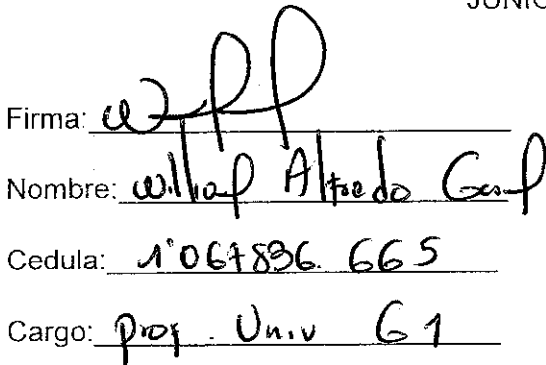 JUNIO
Firma:
Nombre: William Alfredo
Cedula: 1'067836.665
Cargo: prof. Univ G1